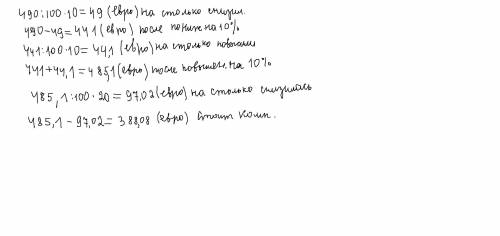 490:100·10=49 (евро) на столько снизил.
490-49=441 (евро) после пониже на 10%
441:100·10=44,1 (евро) на столько повысили
441+44,1=485,1 (евро) после повышен. на 10%
485,1:100·20=97,02 (евро) на столько снизилась
485,1-97,02=388,08 (евро) стоит комп.